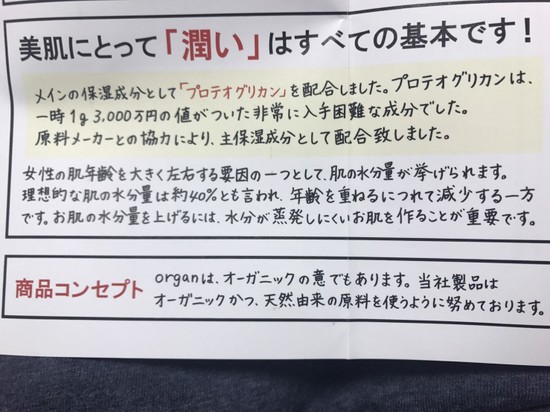 美肌にとって「潤い」はすべての基本です！
メインの保湿成分として「プロテオグリカン」を配合しました。プロテオグリカンは、
一時1g 3,000万円の値がついた非常に入手困難な成分でした。
原料メーカーとの協力により、主保湿成分として配合致しました。
女性の肌年齢を大きく左右する要因の一つとして、肌の水分量が挙げられます。
理想的な肌の水分量は約40%とも言われ、年齢を重ねるにつれて減少する一方
です。お肌の水分量を上げるには、水分が蒸発しにくいお肌を作ることが重要です。
商品コンセプト
organは、オーガニックの意でもあります。当社製品は
オーガニックかつ、天然由来の原料を使うように努めております。